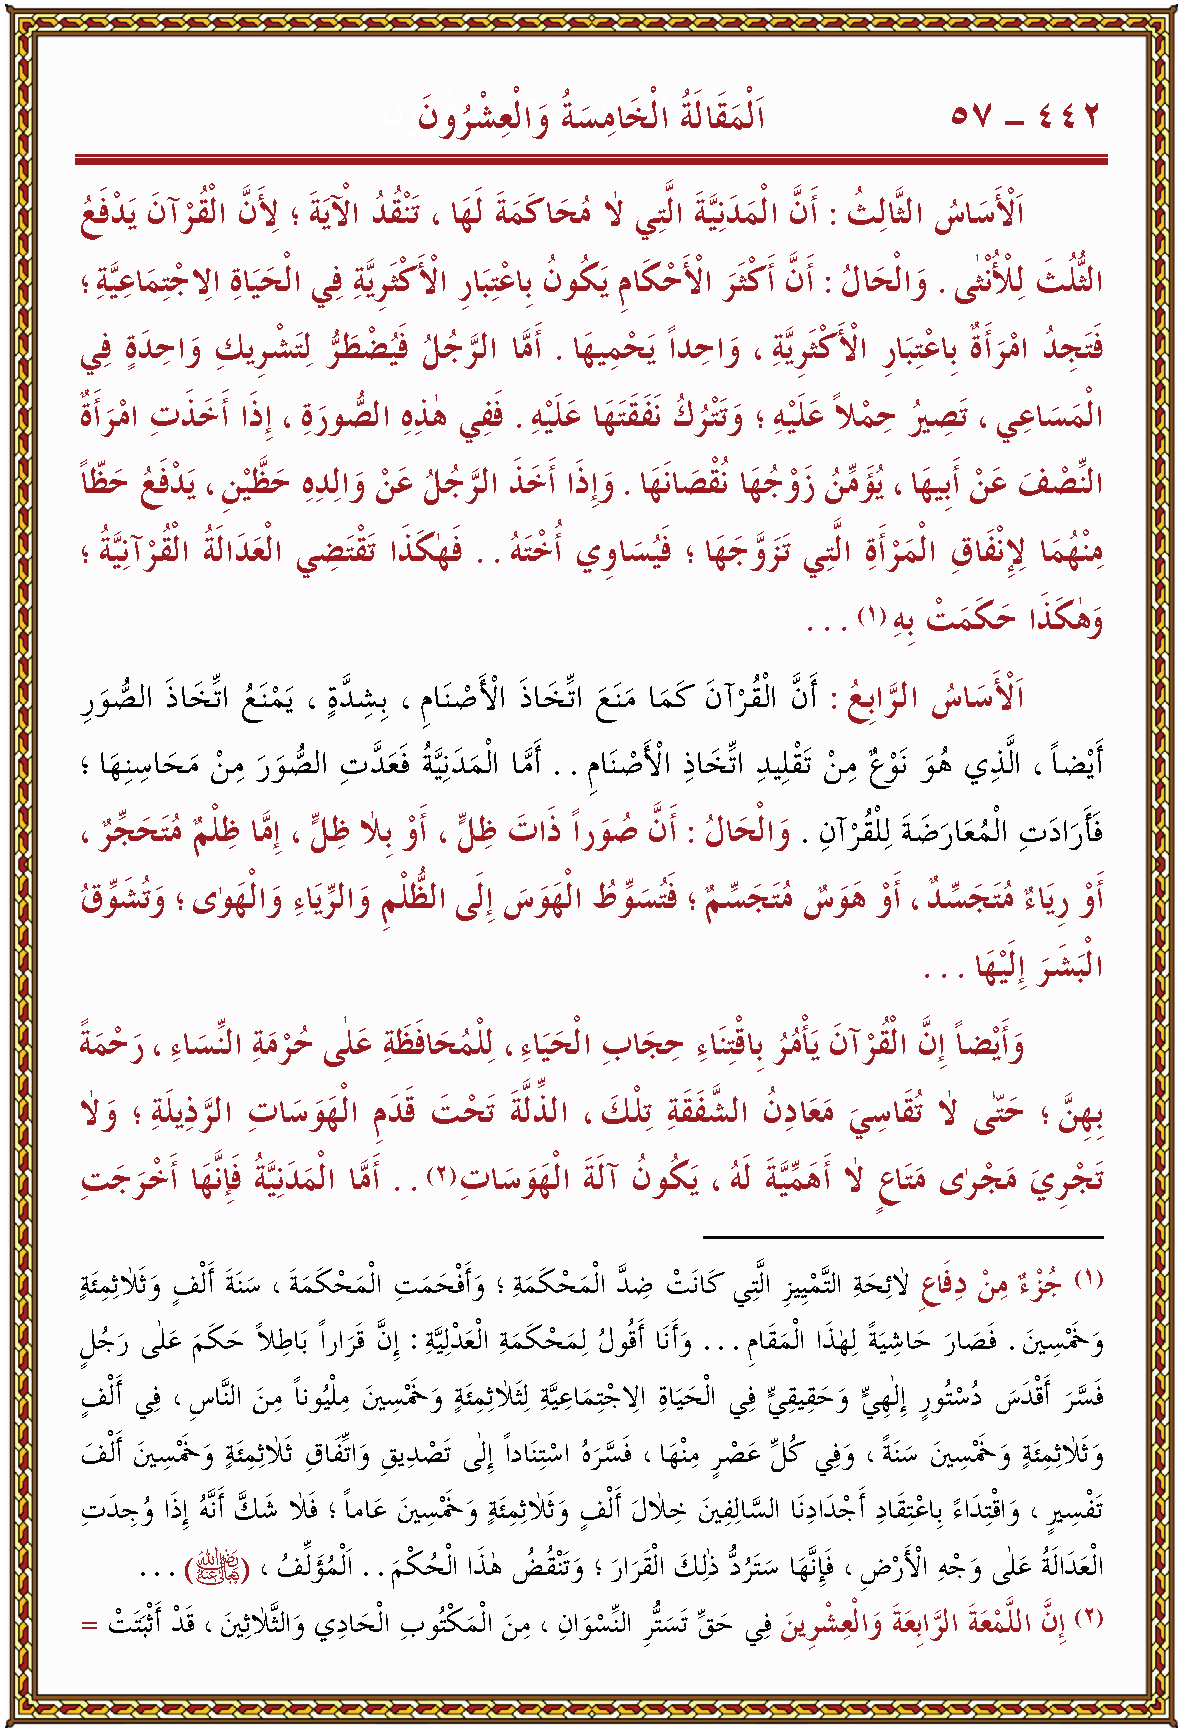 ٤٤٢ – ٥٧ اَلْمَقَالَةُ الْخَامِسَةُ وَالْعِشْرُونَ
اَلْأَسَاسُ الثَّالِثُ : أَنَّ الْمَدَنِيَّةَ الَّتِي لَا مُحَاكَمَةَ لَهَا ، تَنْقُدُ الْآيَةَ ؛ لِأَنَّ الْقُرْآنَ يَدْفَعُ
الثُّلُثَ لِلْأُنْثٰى . وَالْحَالُ : أَنَّ أَكْثَرَ الْأَحْكَامِ يَكُونُ بِاعْتِبَارِ الْأَكْثَرِيَّةِ فِي الْحَيَاةِ الِاجْتِمَاعِيَّةِ ؛
فَتَجِدُ امْرَأَةٌ بِاعْتِبَارِ الْأَكْثَرِيَّةِ ، وَاحِداً يَحْمِيهَا . أَمَّا الرَّجُلُ فَيُضْطَرُّ لِتَشْرِيكِ وَاحِدَةٍ فِي
الْمَسَاعِي ، تَصِيرُ حِمْلاً عَلَيْهِ ؛ وَتَتْرُكُ نَفَقَتَهَا عَلَيْهِ . فَفِي هٰذِهِ الصُّورَةِ ، إِذَا أَخَذَتِ امْرَأَةٌ
النِّصْفَ عَنْ أَبِيهَا ، يُؤَمِّنُ زَوْجُهَا نُقْصَانَهَا . وَإِذَا أَخَذَ الرَّجُلُ عَنْ وَالِدِهِ حَظَّيْنِ ، يَدْفَعُ حَظّاً
مِنْهُمَا لِإِنْفَاقِ الْمَرْأَةِ الَّتِي تَزَوَّجَهَا ؛ فَيُسَاوِي أُخْتَهُ . . فَهٰكَذَا تَقْتَضِي الْعَدَالَةُ الْقُرْآنِيَّةُ ؛
وَهٰكَذَا حَكَمَتْ بِهِ (١) . . .
اَلْأَسَاسُ الرَّابِعُ : أَنَّ الْقُرْآنَ كَمَا مَنَعَ اتِّخَاذَ الْأَصْنَامِ ، بِشِدَّةٍ ، يَمْنَعُ اتِّخَاذَ الصُّوَرِ
أَيْضاً ، الَّذِي هُوَ نَوْعٌ مِنْ تَقْلِيدِ اتِّخَاذِ الْأَصْنَامِ . . أَمَّا الْمَدَنِيَّةُ فَعَدَّتِ الصُّوَرَ مِنْ مَحَاسِنِهَا ؛
فَأَرَادَتِ الْمُعَارَضَةَ لِلْقُرْآنِ . وَالْحَالُ : أَنَّ صُوَراً ذَاتَ ظِلٍّ ، أَوْ بِلَا ظِلٍّ ، إِمَّا ظُلْمٌ مُتَحَجِّرٌ ،
أَوْ رِيَاءٌ مُتَجَسِّدٌ ، أَوْ هَوَسٌ مُتَجَسِّمٌ ؛ فَتُسَوِّطُ الْهَوَسَ إِلَى الظُّلْمِ وَالرِّيَاءِ وَالْهَوٰى ؛ وَتُشَوِّقُ
الْبَشَرَ إِلَيْهَا . . .
وَأَيْضاً إِنَّ الْقُرْآنَ يَأْمُرُ بِاقْتِنَاءِ حِجَابِ الْحَيَاءِ ، لِلْمُحَافَظَةِ عَلٰى حُرْمَةِ النِّسَاءِ ، رَحْمَةً
بِهِنَّ ؛ حَتّٰى لَا تُقَاسِيَ مَعَادِنُ الشَّفَقَةِ تِلْكَ ، الذِّلَّةَ تَحْتَ قَدَمِ الْهَوَسَاتِ الرَّذِيلَةِ ؛ وَلَا
تَجْرِيَ مَجْرٰى مَتَاعٍ لَا أَهَمِّيَّةَ لَهُ ، يَكُونُ آلَةَ الْهَوَسَاتِ (٢) . . أَمَّا الْمَدَنِيَّةُ فَإِنَّهَا أَخْرَجَتِ
(١) جُزْءٌ مِنْ دِفَاعِ لَائِحَةِ التَّمْيِيزِ الَّتِي كَانَتْ ضِدَّ الْمَحْكَمَةِ ؛ وَأَفْحَمَتِ الْمَحْكَمَةَ ، سَنَةَ أَلْفٍ وَثَلَاثِمِئَةٍ
وَخَمْسِينَ . فَصَارَ حَاشِيَةً لِهٰذَا الْمَقَامِ . . . وَأَنَا أَقُولُ لِمَحْكَمَةِ الْعَدْلِيَّةِ : إِنَّ قَرَاراً بَاطِلاً حَكَمَ عَلٰى رَجُلٍ
فَسَّرَ أَقْدَسَ دُسْتُورٍ إِلٰهِيٍّ وَحَقِيقِيٍّ فِي الْحَيَاةِ الِاجْتِمَاعِيَّةِ لِثَلَاثِمِئَةٍ وَخَمْسِينَ مِلْيُوناً مِنَ النَّاسِ ، فِي أَلْفٍ
وَثَلَاثِمِئَةٍ وَخَمْسِينَ سَنَةً ، وَفِي كُلِّ عَصْرٍ مِنْهَا ، فَسَّرَهُ اسْتِنَاداً إِلٰى تَصْدِيقِ وَاتِّفَاقِ ثَلَاثِمِئَةٍ وَخَمْسِينَ أَلْفَ
تَفْسِيرٍ ، وَاقْتِدَاءً بِاعْتِقَادِ أَجْدَادِنَا السَّالِفِينَ خِلَالَ أَلْفٍ وَثَلَاثِمِئَةٍ وَخَمْسِينَ عَاماً ؛ فَلَا شَكَّ أَنَّهُ إِذَا وُجِدَتِ
الْعَدَالَةُ عَلٰى وَجْهِ الْأَرْضِ ، فَإِنَّهَا سَتَرُدُّ ذٰلِكَ الْقَرَارَ ؛ وَتَنْقُضُ هٰذَا الْحُكْمَ . . اَلْمُؤَلِّفُ ، ( رضي الله عنه ) . . .
(٢) إِنَّ اللَّمْعَةَ الرَّابِعَةَ وَالْعِشْرِينَ فِي حَقِّ تَسَتُّرِ النِّسْوَانِ ، مِنَ الْمَكْتُوبِ الْحَادِي وَالثَّلَاثِينَ ، قَدْ أَثْبَتَتْ =